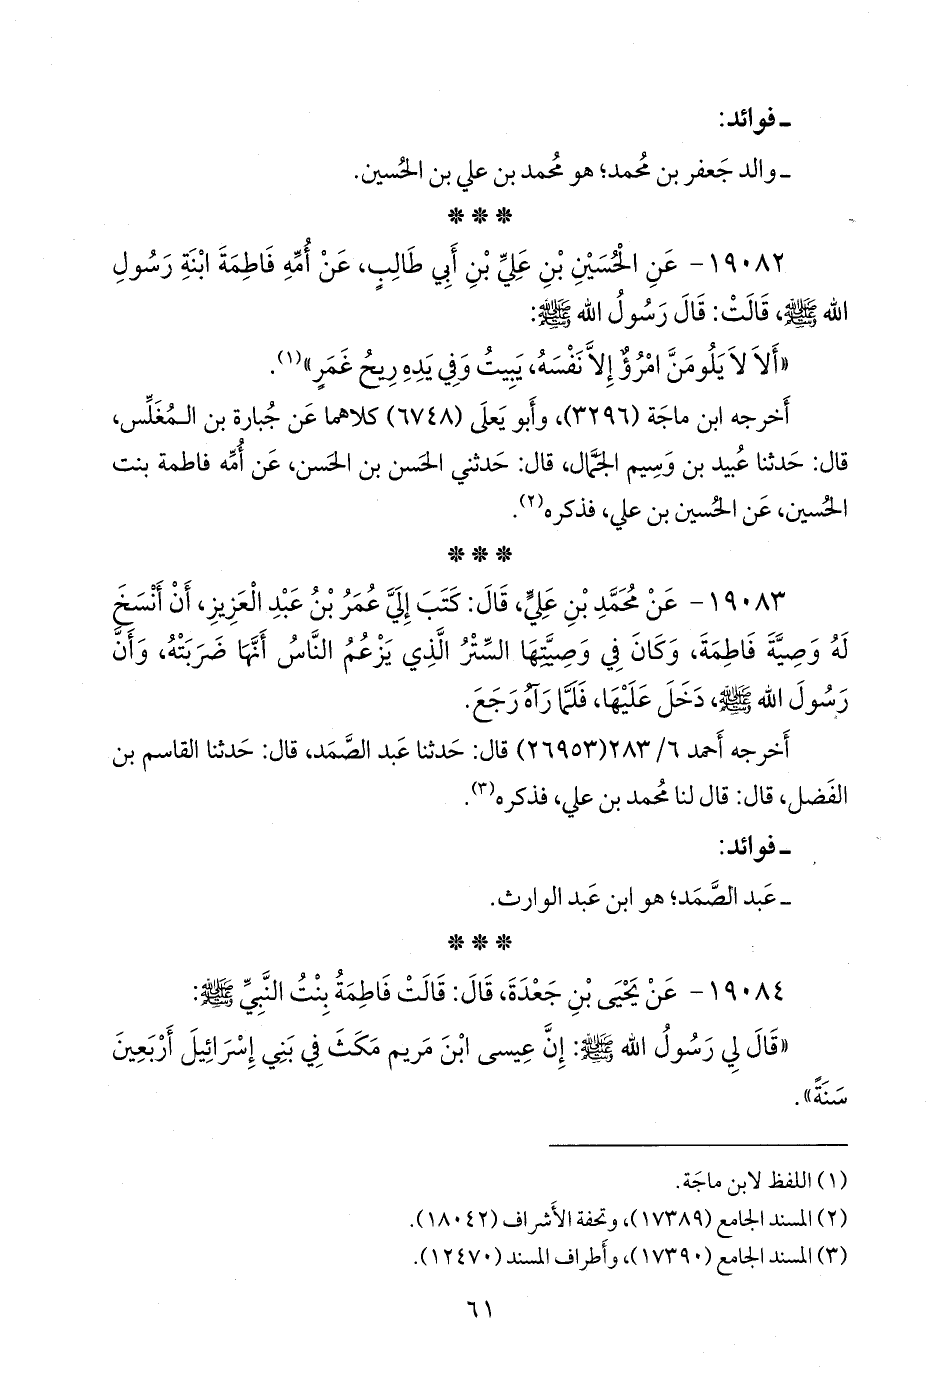 ـ فوائد:
ـ والد جَعفر بن مُحمد؛ هو مُحمد بن علي بن الحُسين.
* * *
١٩٠٨٢- عَنِ الْحُسَيْنِ بْنِ عَلِيِّ بْنِ أَبِي طَالِبٍ، عَنْ أُمِّهِ فَاطِمَةَ ابْنَةِ رَسُولِ
الله ﷺ، قَالَتْ: قَالَ رَسُولُ الله ﷺ:
«أَلاَ لاَ يَلُومَنَّ امْرُؤٌ إِلاَّ نَفْسَهُ، يَبِيتُ وَفِي يَدِهِ رِيحُ غَمَرٍ»(١).
أَخرجه ابن ماجَة (٣٢٩٦)، وأَبو يَعلَى (٦٧٤٨) كلاهما عَن جُبارة بن الـمُغَلِّس،
قال: حَدثنا عُبيد بن وَسِيم الجَمَّال، قال: حَدثني الحَسن بن الحَسن، عَن أُمِّه فاطمة بنت
الحُسين، عَن الحُسين بن علي، فذكره(٢).
* * *
١٩٠٨٣- عَنْ مُحَمَّدِ بْنِ عَلِيٍّ، قَالَ: كَتَبَ إِلَيَّ عُمَرُ بْنُ عَبْدِ الْعَزِيزِ، أَنْ أَنْسَخَ
لَهُ وَصِيَّةَ فَاطِمَةَ، وَكَانَ فِي وَصِيَّتِهَا السِّتْرُ الَّذِي يَزْعُمُ النَّاسُ أَنَّهَا ضَرَبَتْهُ، وَأَنَّ
رَسُولَ الله ﷺ، دَخَلَ عَلَيْهَا، فَلَمَّا رَآهُ رَجَعَ.
أَخرجه أَحمد ٦/ ٢٨٣(٢٦٩٥٣) قال: حَدثنا عَبد الصَّمَد، قال: حَدثنا القاسم بن
الفَضل، قال: قال لنا مُحمد بن علي، فذكره(٣).
ـ فوائد:
ـ عَبد الصَّمَد؛ هو ابن عَبد الوارث.
* * *
١٩٠٨٤- عَنْ يَحْيَى بْنِ جَعْدَةَ، قَالَ: قَالَتْ فَاطِمَةُ بِنْتُ النَّبِيِّ ﷺ:
«قَالَ لِي رَسُولُ الله ﷺ: إِنَّ عِيسى ابْنَ مَريم مَكَثَ فِي بَنِي إِسْرَائِيلَ أَرْبَعِينَ
سَنَةً».
(١) اللفظ لابن ماجَة.
(٢) المسند الجامع (١٧٣٨٩)، وتحفة الأَشراف (١٨٠٤٢).
(٣) المسند الجامع (١٧٣٩٠)، وأَطراف المسند (١٢٤٧٠).
٦١